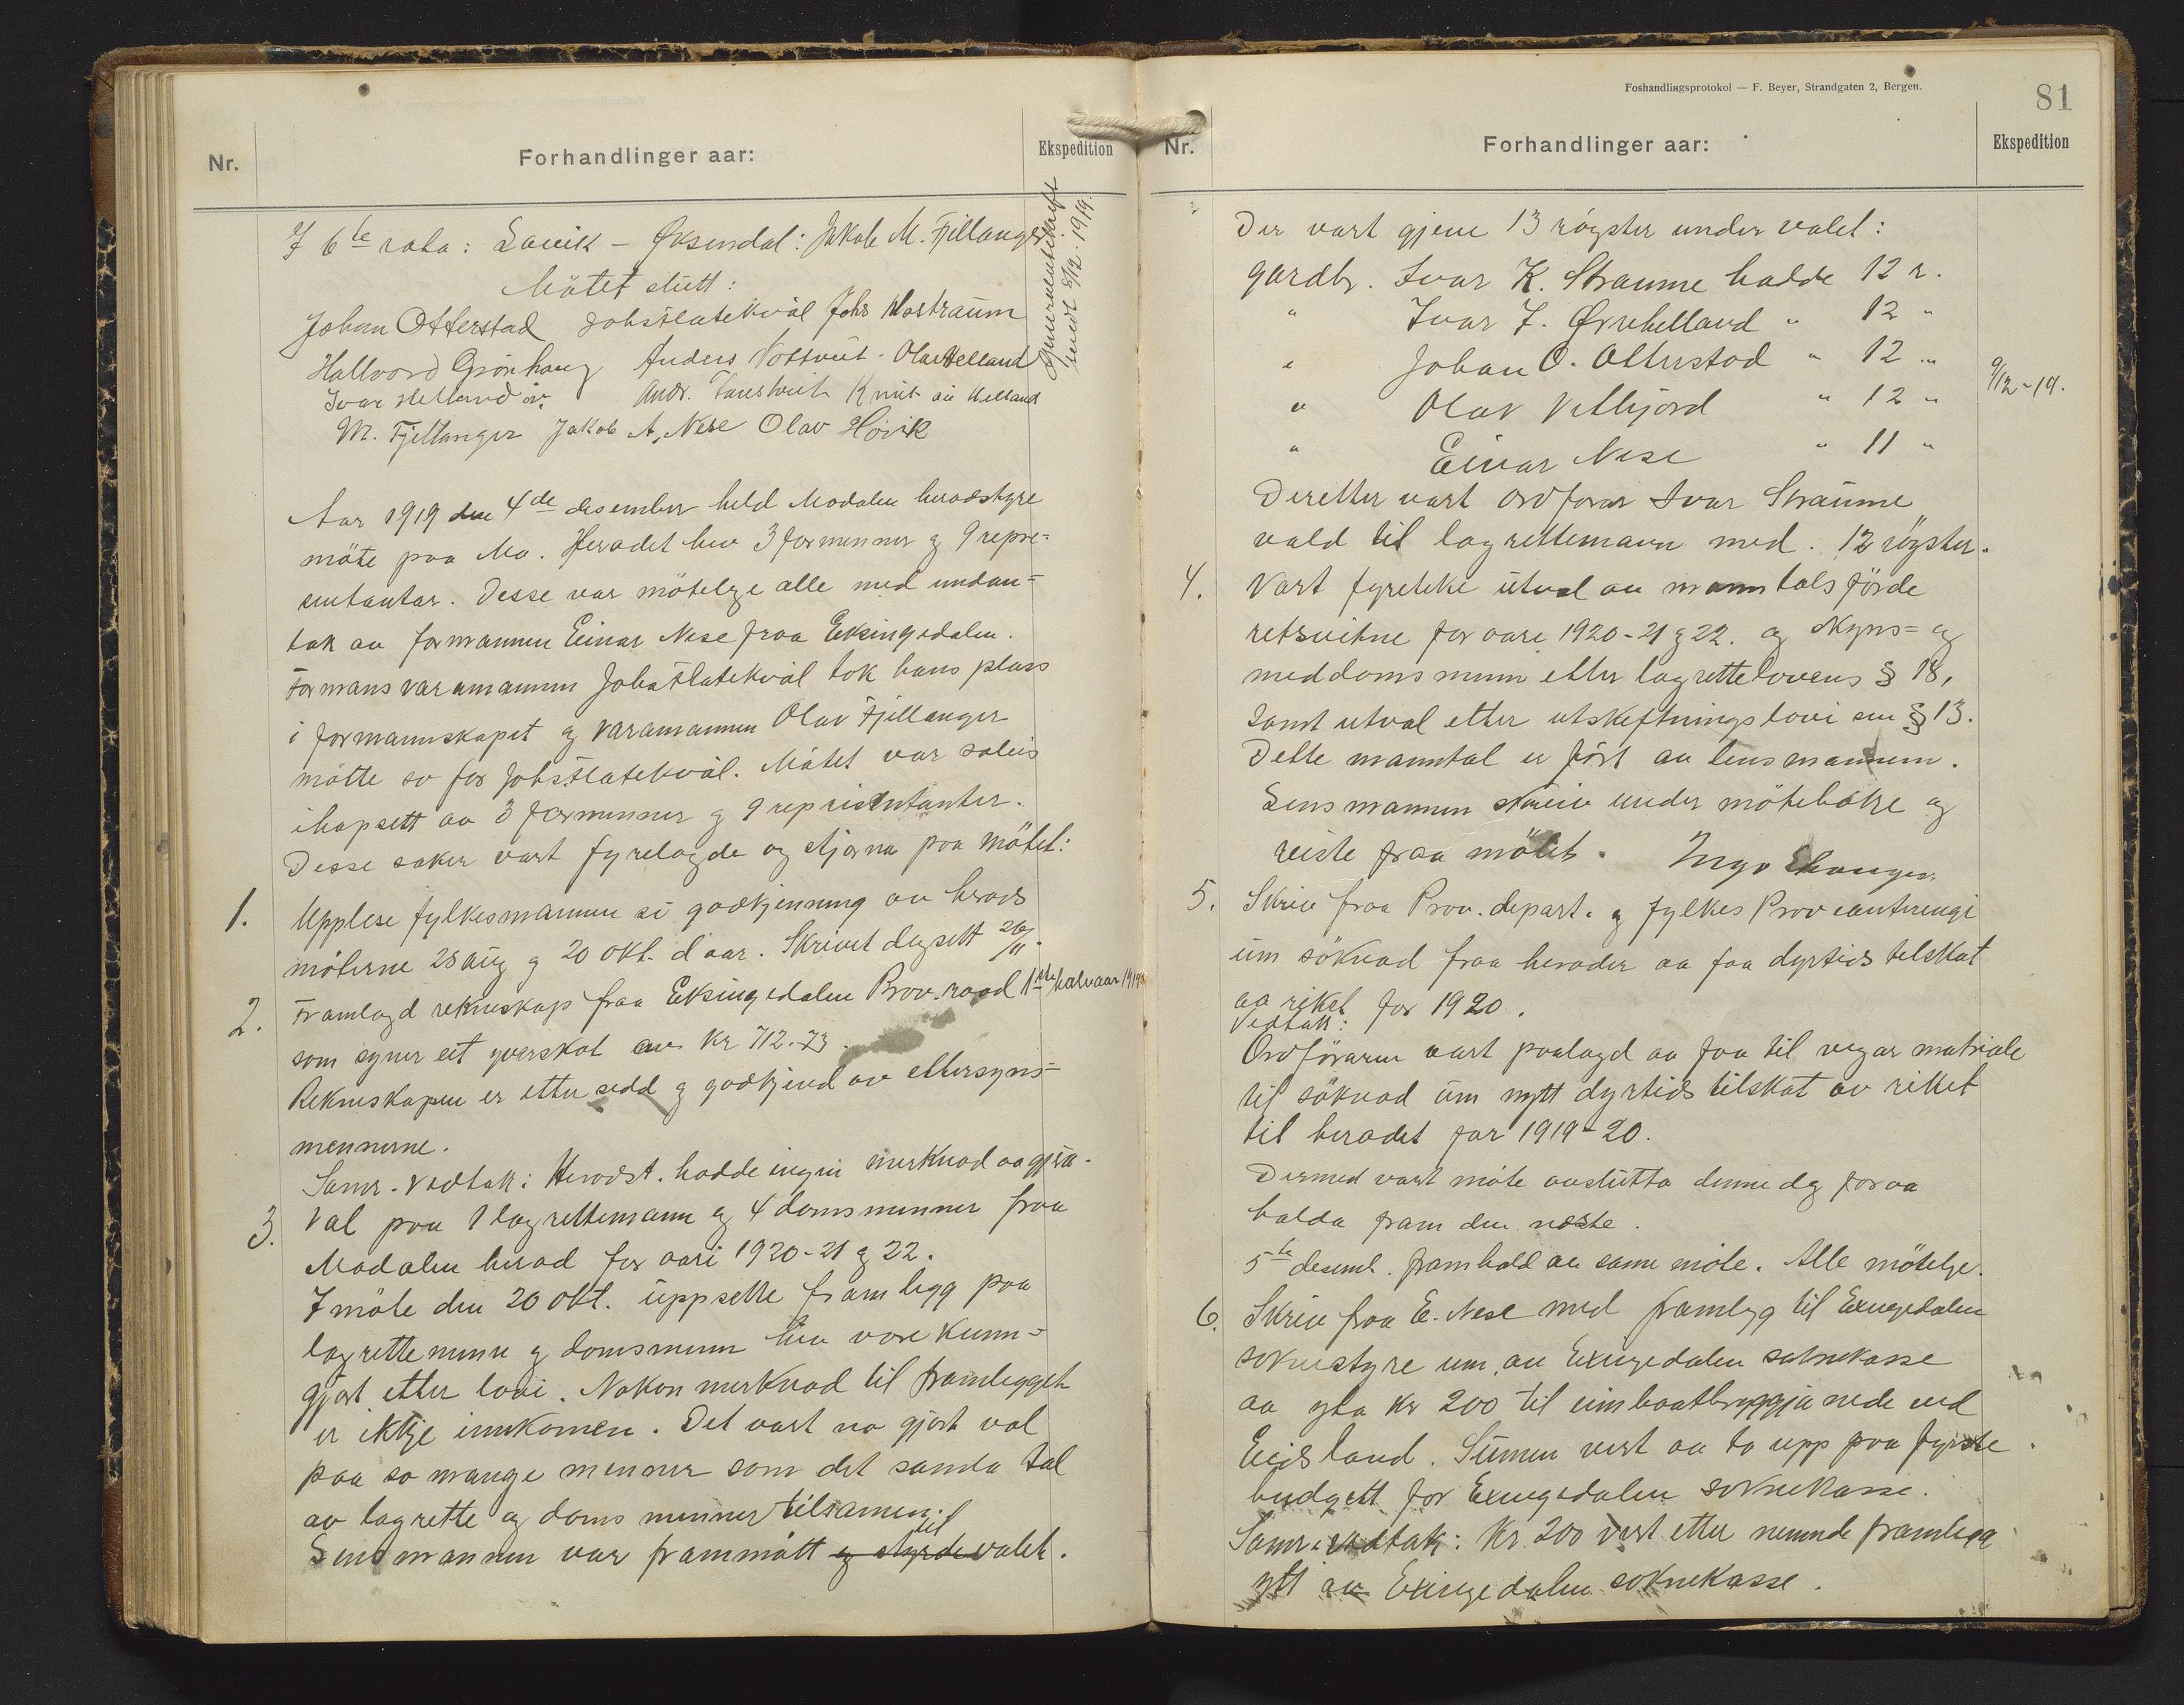 Nr.
Forhandlinger aar:
Ekspedition
I 6te rota: Lavik - Øksendal: Jakob M. Fjellanger
Mötet slutt:
Johan Otterstad Johs Flatekvål Johs Mostraum
Hallvord Grönhaug Anders Votlveit. Olav Helland
Ivar Helland Andr. Knut Helland
M. Fjellanger Jakob A. Nese Olav Hövik
sendt 5/12. 1919.
Aar 1919 den 4de desember held Modalen heradstyre
möte paa Mo. Heradet hev 3 formenner og 9 repre=
sentantar. Desse var mötelege alle med undan=
tak av formannen Einar Nese fraa Eksingedalen.
Formansvaramannen Johs Flatekvål tok hans plass
i formannskapet og varamannen Olav Fjellanger
mötte so for Johs Flatekvål. Mötet var soleis
ihopsett av 3 formenner og 9 representanter.
Desse saker vart fyrelagde og avgjorna paa mötet:
1.
Upplese fylkesmannen si godkjenning av herads
möterne 28 aug og 20 okt. d aar. Skrivet dagsett 26/11.
2.
Framlagd rekneskap fraa Eksingedalen Prov.raad 1ste halvaar 1919
som syner eit yverskot av kr 712.73.
Rekneskapen er etter sedd og godkjend av ettersyns=
mennerne.
Samr. Vedtak: Heradst. hadde ingen merknad aa gjera.
3.
Val paa 1 lagrettemann og 4 domsmenner fraa
Modalen herad for aari 1920-21 og 22.
I möte den 20 okt. uppsette framlegg paa
lagrettemenn og domsmenn hev vore kunn=
gjort etter lovi. Nokon merknad til framlegget
er ikkje innkomen. Det vart no gjort val
paa so mange menner som det samla tal
av lagrette og doms menner tilsamen.
til
Lensmannen var frammött og styrde valet.
Foshandlingsprotokol — F. Beyer, Strandgaten 2, Bergen.
81
Nr.
Forhandlinger aar:
Ekspedition
Der vart gjeve 13 röyster under valet:
gardbr. Ivar K. Straume hadde 12 r.
" Ivar J. Övrehelland " 12 "
" Johan O. Otterstad " 12 "
9/12-19.
" Olav Vetlejord " 12 "
" Einar Nese " 11 "
Deretter vart ordförar Ivar Straume
vald til lagrettemann med. 12 röyster.
4.
Vart fyretekke utval av manntalsförde
retsvitne for aare 1920-21 og 22. og skyns= og
meddomsmenn etter lagrettelovens § 18,
samt utval etter utskiftningslovi sin § 13.
Dette manntal er fört av lensmannen.
Lensmannen skreiv under möteboke og
reiste fraa mötet.
5.
Skriv fraa Prov. depart. og fylkes Provianterengi
um söknad fraa herader aa faa dyrtids telskot
av riket for 1920.
Vedtak:
Ordföraren vart paalagd aa faa til vegar matriale
til söknad um nytt dyrtids tilskot av riket
til heradet for 1919-20.
Dermed vart möte avslutta denne dag for aa
halda fram den neste.
5te desemb. framhald av same möte. Alle mötelge.
6.
Skriv fraa E. Nese med framlegg til Exingedalen
soknestyre um, av Exingedalen soknekasse
aa yta kr 200 til eimbaatbryggja nede ved
Eidsland. Sumen vert aa ta upp paa fyrste
budgett for Exingedalen soknekasse.
Samr. vedtak: Kr. 200 vert etter nemnde framlegg
ytt av Exingedalen soknekasse.